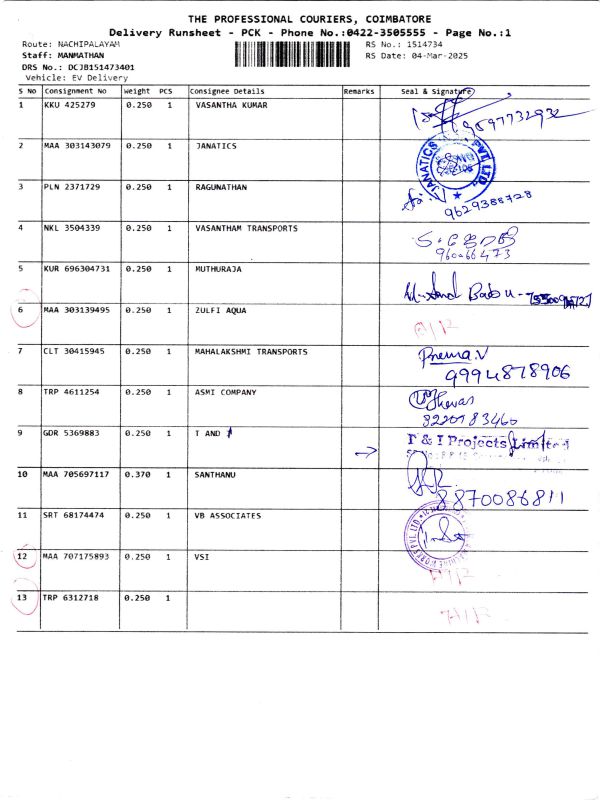 THE PROFESSIONAL COURIERS, COIMBATORE
Delivery Runsheet - PCK - Phone No.:0422-3505555 - Page No.:1
Route: NACHIPALAYAM RS No.: 1514734
Staff: MANMATHAN RS Date: 04-Mar-2025
DRS No.: DCJB151473401
Vehicle: EV Delivery
S No Consignment No Weight PCS Consignee Details Remarks Seal & Signature
1 KKU 425279 0.250 1 VASANTHA KUMAR
9597732932
2 MAA 303143079 0.250 1 JANATICS
JANATICS PVT. LTD.
3 PLN 2371729 0.250 1 RAGUNATHAN
9629388728
4 NKL 3504339 0.250 1 VASANTHAM TRANSPORTS
960066473
5 KUR 696304731 0.250 1 MUTHURAJA
Babu
6 MAA 303139495 0.250 1 ZULFI AQUA
7 CLT 30415945 0.250 1 MAHALAKSHMI TRANSPORTS
Prema.V
9994878906
8 TRP 4611254 0.250 1 ASMI COMPANY
8220783460
9 GDR 5369883 0.250 1 T AND I
T & I Projects Limited
10 MAA 705697117 0.370 1 SANTHANU
8870086811
11 SRT 68174474 0.250 1 VB ASSOCIATES
12 MAA 707175893 0.250 1 VSI
13 TRP 6312718 0.250 1